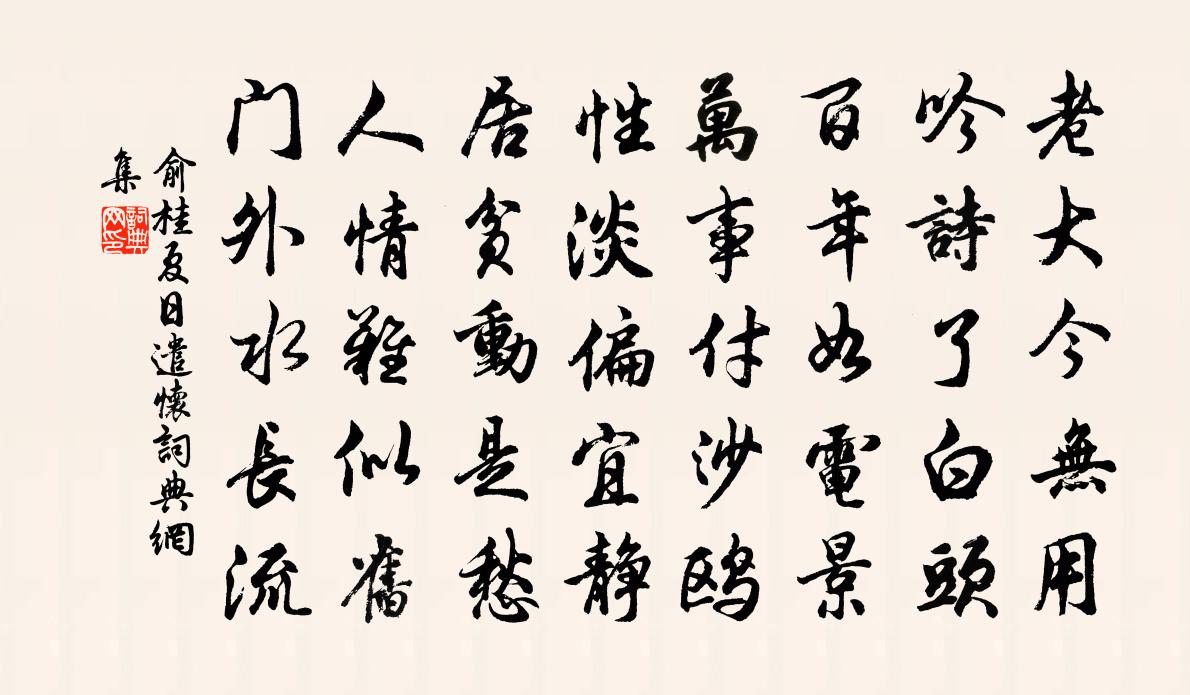 老大今無用
吟詩了白頭
百年如電景
萬事付沙鸥
性淡偏宜靜
居貧動是愁
人情難似舊
门外水長流
俞桂夏日遣懷詞典網
集
詞典網印